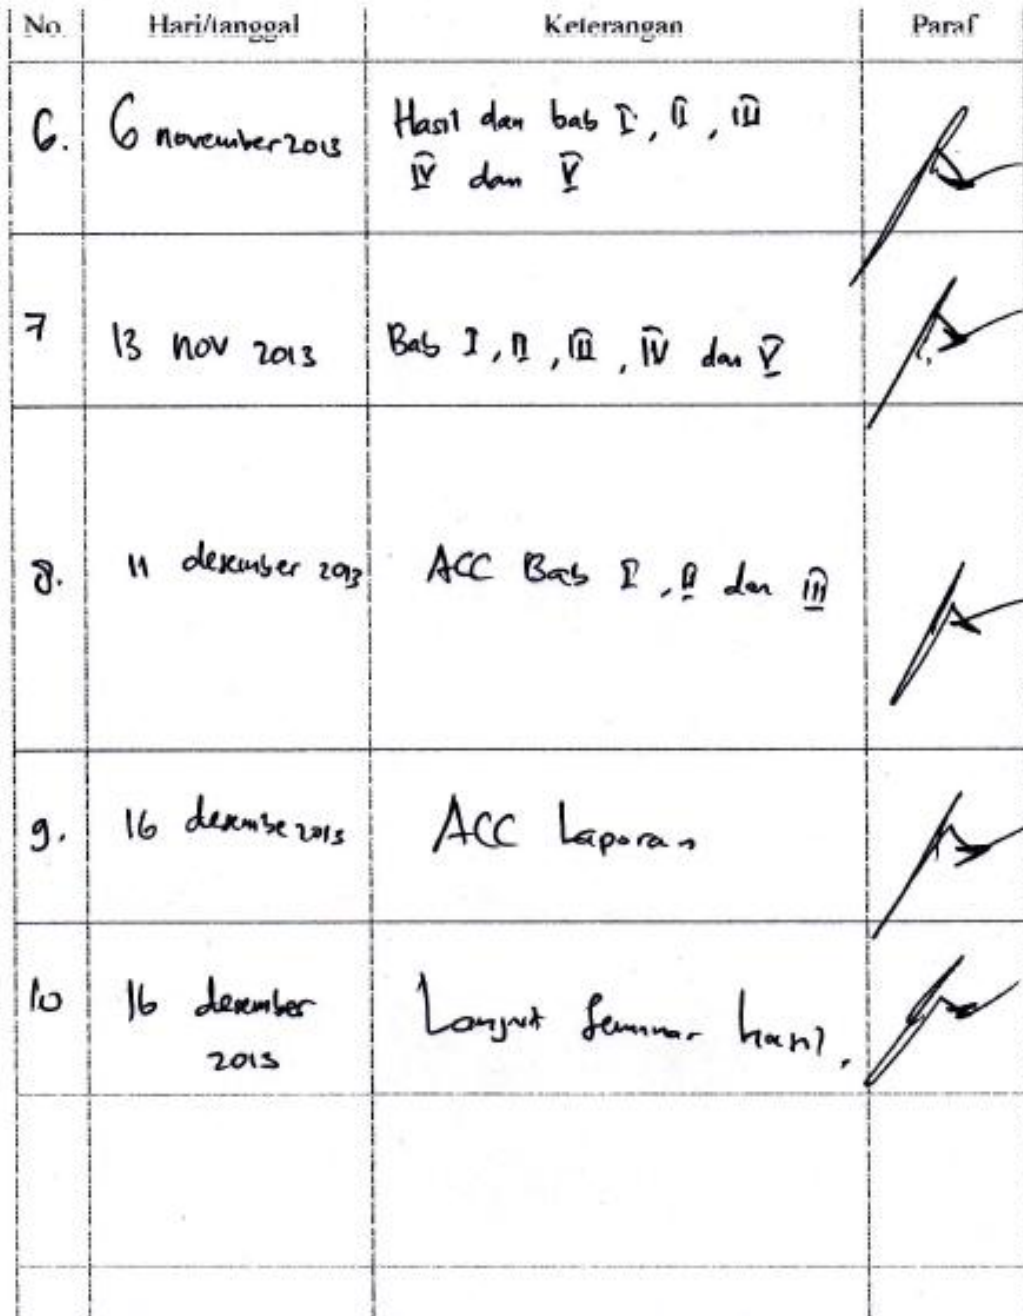 No Hari/tanggal Keterangan Paraf
6. 6 november 2013 Hasil dan bab I, II, III
IV dan V
7 13 nov 2013 Bab I, II, III, IV dan V
8. 11 desember 2013 ACC Bab I, II dan III
9. 16 desembe 2013 ACC Laporan
10 16 desember Lanjut Seminar hasil.
2013